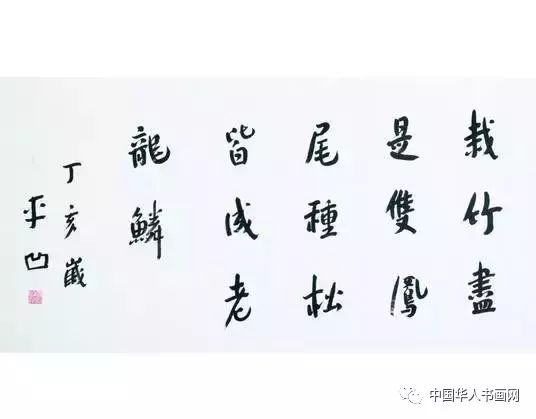 栽竹盡
是雙鳳
尾種松
皆成老
龍鱗
丁亥歲
平凹
中国华人书画网